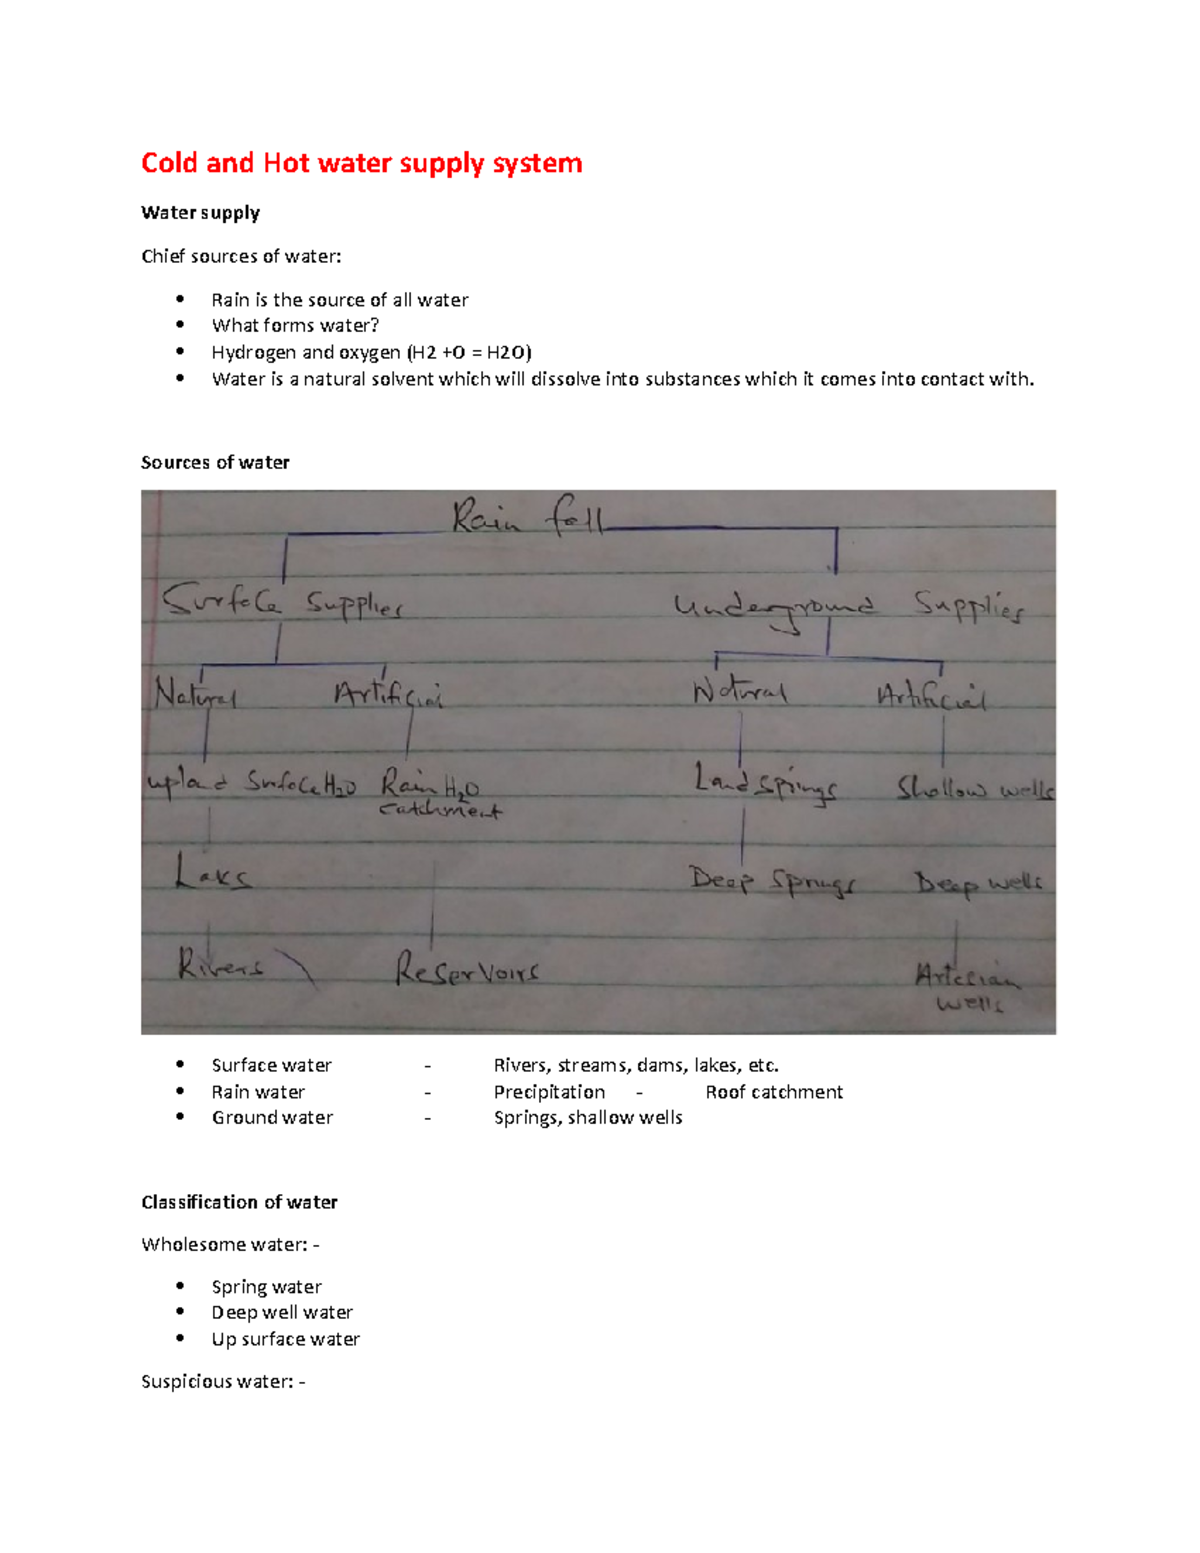 Cold and Hot water supply system
Water supply
Chief sources of water:
• Rain is the source of all water
• What forms water?
• Hydrogen and oxygen (H2 +O = H2O)
• Water is a natural solvent which will dissolve into substances which it comes into contact with.
Sources of water
Rain fall
Surface Supplies Underground Supplies
Natural Artificial Natural Artificial
upland Surface H2O Rain H2O Land Springs Shallow wells
catchment
Laks Deep Springs Deep wells
Rivers Reservoirs Artesian
wells
• Surface water - Rivers, streams, dams, lakes, etc.
• Rain water - Precipitation - Roof catchment
• Ground water - Springs, shallow wells
Classification of water
Wholesome water: -
• Spring water
• Deep well water
• Up surface water
Suspicious water: -